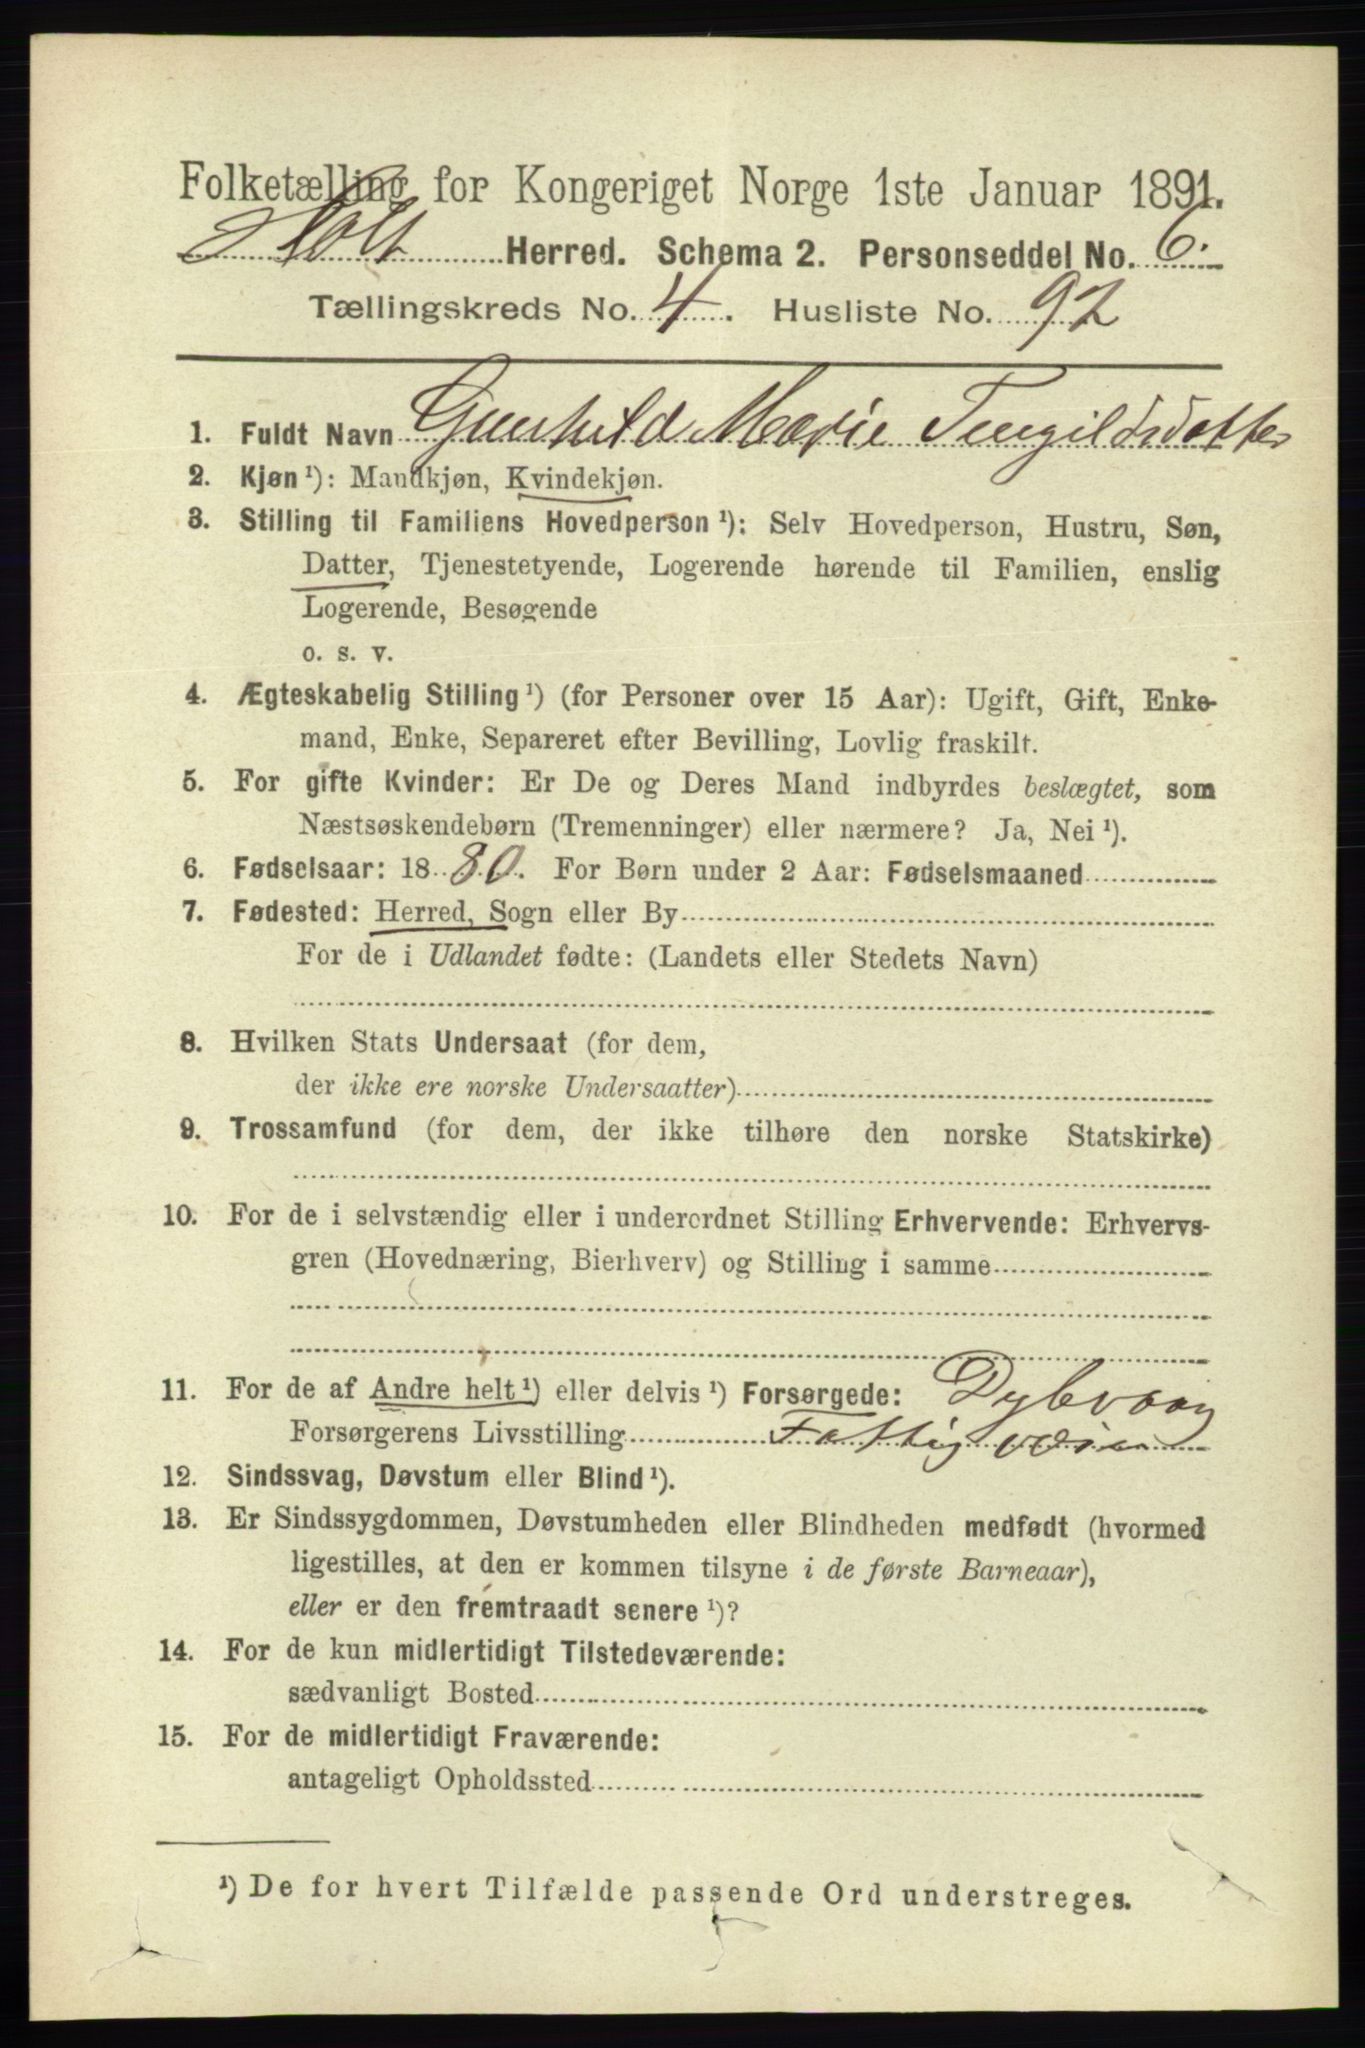 Folketælling for Kongeriget Norge 1ste Januar 1891.
Holt Herred. Schema 2. Personseddel No. 6.
Tællingskreds No. 4. Husliste No. 92
1. Fuldt Navn Gunhild Marie Tengildsdatter
2. Kjøn ¹): Mandkjøn, Kvindekjøn.
3. Stilling til Familiens Hovedperson ¹): Selv Hovedperson, Hustru, Søn,
Datter, Tjenestetyende, Logerende hørende til Familien, enslig
Logerende, Besøgende
o. s. v.
4. Ægteskabelig Stilling ¹) (for Personer over 15 Aar): Ugift, Gift, Enke-
mand, Enke, Separeret efter Bevilling, Lovlig fraskilt.
5. For gifte Kvinder: Er De og Deres Mand indbyrdes beslægtet, som
Næstsøskendebørn (Tremenninger) eller nærmere? Ja, Nei ¹).
6. Fødselsaar: 1880. For Børn under 2 Aar: Fødselsmaaned
7. Fødested: Herred, Sogn eller By
For de i Udlandet fødte: (Landets eller Stedets Navn)
8. Hvilken Stats Undersaat (for dem,
der ikke ere norske Undersaatter)
9. Trossamfund (for dem, der ikke tilhøre den norske Statskirke)
10. For de i selvstændig eller i underordnet Stilling Erhvervende: Erhvervs-
gren (Hovednæring, Bierhverv) og Stilling i samme
11. For de af Andre helt ¹) eller delvis ¹) Forsørgede: Dybvaag
Forsørgerens Livsstilling Fattigvæsen
12. Sindssvag, Døvstum eller Blind ¹).
13. Er Sindssygdommen, Døvstumheden eller Blindheden medfødt (hvormed
ligestilles, at den er kommen tilsyne i de første Barneaar),
eller er den fremtraadt senere ¹)?
14. For de kun midlertidigt Tilstedeværende:
sædvanligt Bosted
15. For de midlertidigt Fraværende:
antageligt Opholdssted
¹) De for hvert Tilfælde passende Ord understreges.